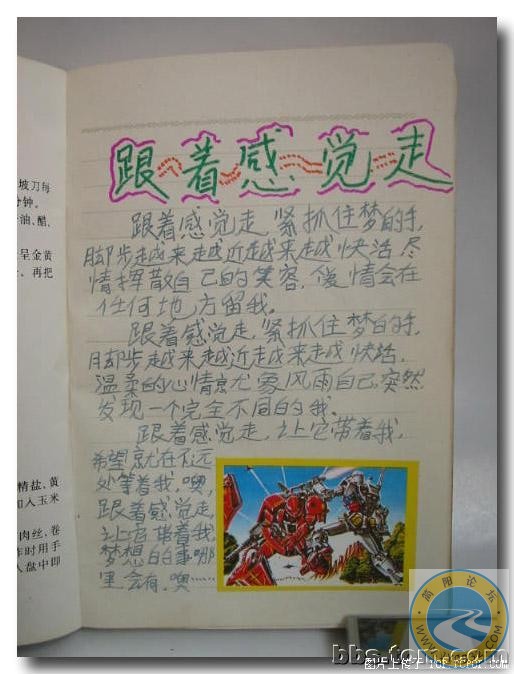 坡刀每
分钟。
油、醋、
呈金黄
再把
精盐、黄
加入玉米
肉丝,卷
炸时用手
入盘中即
跟着感觉走
跟着感觉走,紧抓住梦的手,
脚步越来越近越来越快活,尽
情挥散自己的笑容,爱情会在
任何地方留我。
跟着感觉走,紧抓住梦的手,
脚步越来越近越来越快活,
温柔的心情就象风雨自己,突然
发现一个完全不同的我。
跟着感觉走,让它带着我,
希望就在不远
处等着我,噢,
跟着感觉走,
让它带着我,
梦想的的事哪
里会有,噢
简阳论坛